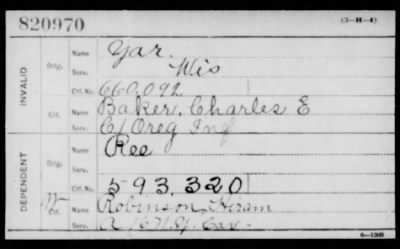 820970 (3-H-4)
INVALID
Orig. Name Yar.
Serv. Wis
Ctf. No. 660,092
Ctf. Name Baker, Charles E
Serv. C/ Oreg Inf
DEPENDENT
Orig. Name Ree
Serv.
Ctf. No. 593,320
Ctf. Name Robinson, Hiram
Serv. A N.Y. Cav.